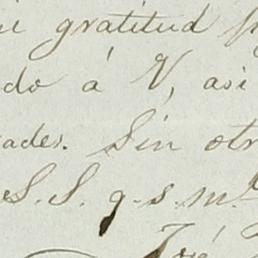 gratitud
do á V, asi
ades. Sin otr
S. S. q. s. m.
José